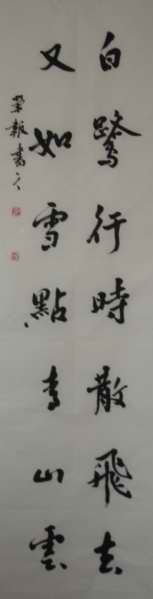 白鷺行時散飛去
又如雪點青山雲
榮報書